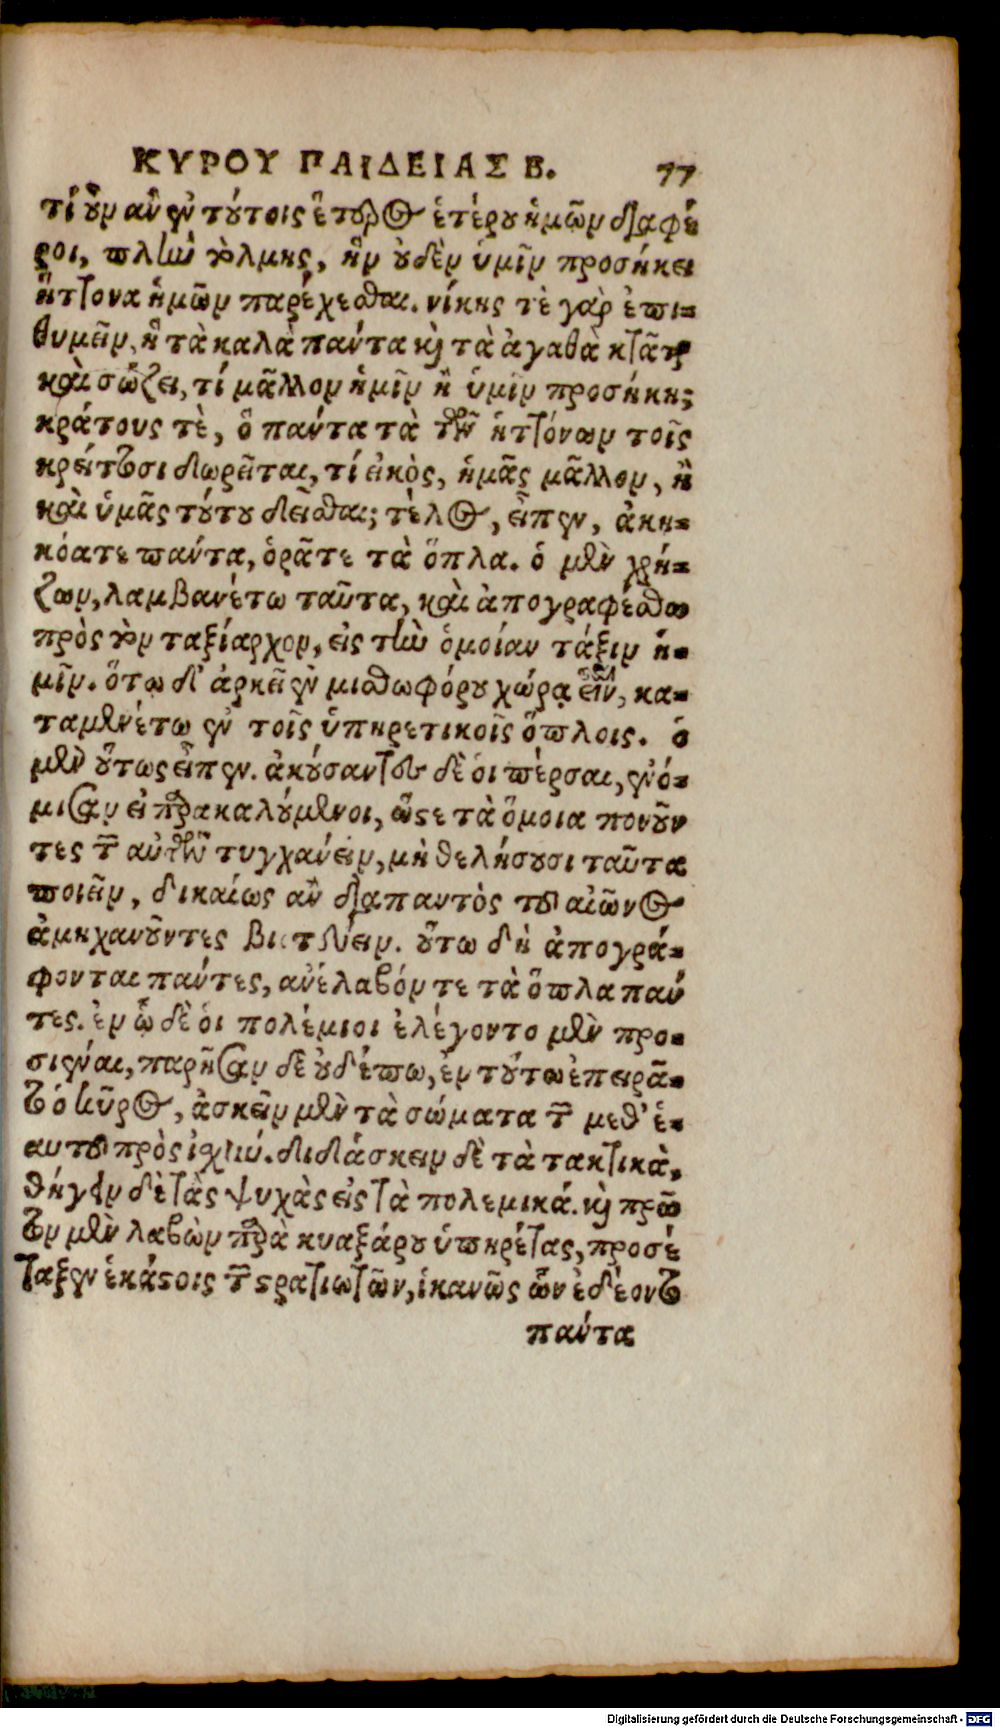 ΚΥΡΟΥ ΠΑΙΔΕΙΑΣ Β. 77
τί οὖν ἂν ἐν τούτοις ἕτερος ἑτέρου ἡμῶν διαφέ
ροι, πλὴν τόλμης, ἣν οὐδὲν ὑμῖν προσήκει
ἥττονα ἡμῶν παρέχεσθαι. νίκης τὲ γὰρ ἐπι-
θυμεῖν, ἢ τὰ καλὰ πάντα καὶ τὰ ἀγαθὰ κτᾶται
καὶ σώζει, τί μᾶλλον ἡμῖν ἢ ὑμῖν προσήκη;
κράτους τὲ, ὃ πάντα τὰ τῶν ἡττόνων τοῖς
κρείττοσι δωρεῖται, τί εἰκὸς, ἡμᾶς μᾶλλον, ἢ
καὶ ὑμᾶς τούτου δεῖσθαι; τέλος, εἶπεν, ἀκη-
κόατε πάντα, ὁρᾶτε τὰ ὅπλα. ὁ μὲν χρή-
ζων, λαμβανέτω ταῦτα, καὶ ἀπογραφέσθω
πρὸς τὸν ταξίαρχον, εἰς τὴν ὁμοίαν τάξιν ἡ-
μῖν. ὅτῳ δ' ἀρκεῖ ἐν μισθωφόρου χώρᾳ εἶναι, κα-
ταμενέτω ἐν τοῖς ὑπηρετικοῖς ὅπλοις. ὁ
μὲν οὕτως εἶπεν. ἀκούσαντες δὲ οἱ πέρσαι, ἐνό-
μισαν εἰ παρακαλούμενοι, ὥστε τὰ ὅμοια πονοῦν
τες τῶν αὐτῶν τυγχάνειν, μὴ θελήσουσι ταῦτα
ποιεῖν, δικαίως ἂν διαπαντὸς τοῦ αἰῶνος
ἀμηχανοῦντες βιοτεύειν. οὕτω δὴ ἀπογρά-
φονται πάντες, ἀνέλαβόν τε τὰ ὅπλα πάν
τες. ἐν ᾧ δὲ οἱ πολέμιοι ἐλέγοντο μὲν προ-
σιέναι, παρῆσαν δὲ οὐδέπω, ἐν τούτῳ ἐπειρᾶ-
το ὁ κῦρος, ἀσκεῖν μὲν τὰ σώματα τῶν μεθ' ἑ-
αυτοῦ πρὸς ἰσχύν. διδάσκειν δὲ τὰ τακτικὰ,
θήγειν δὲ τὰς ψυχὰς εἰς τὰ πολεμικά. καὶ πρῶ
τον μὲν λαβὼν παρὰ κυαξάρου ὑπηρέτας, προσέ
ταξεν ἑκάστοις τῶν στρατιωτῶν, ἱκανῶς ὧν ἐδέοντο
πάντα
Digitalisierung gefördert durch die Deutsche Forschungsgemeinschaft - DFG